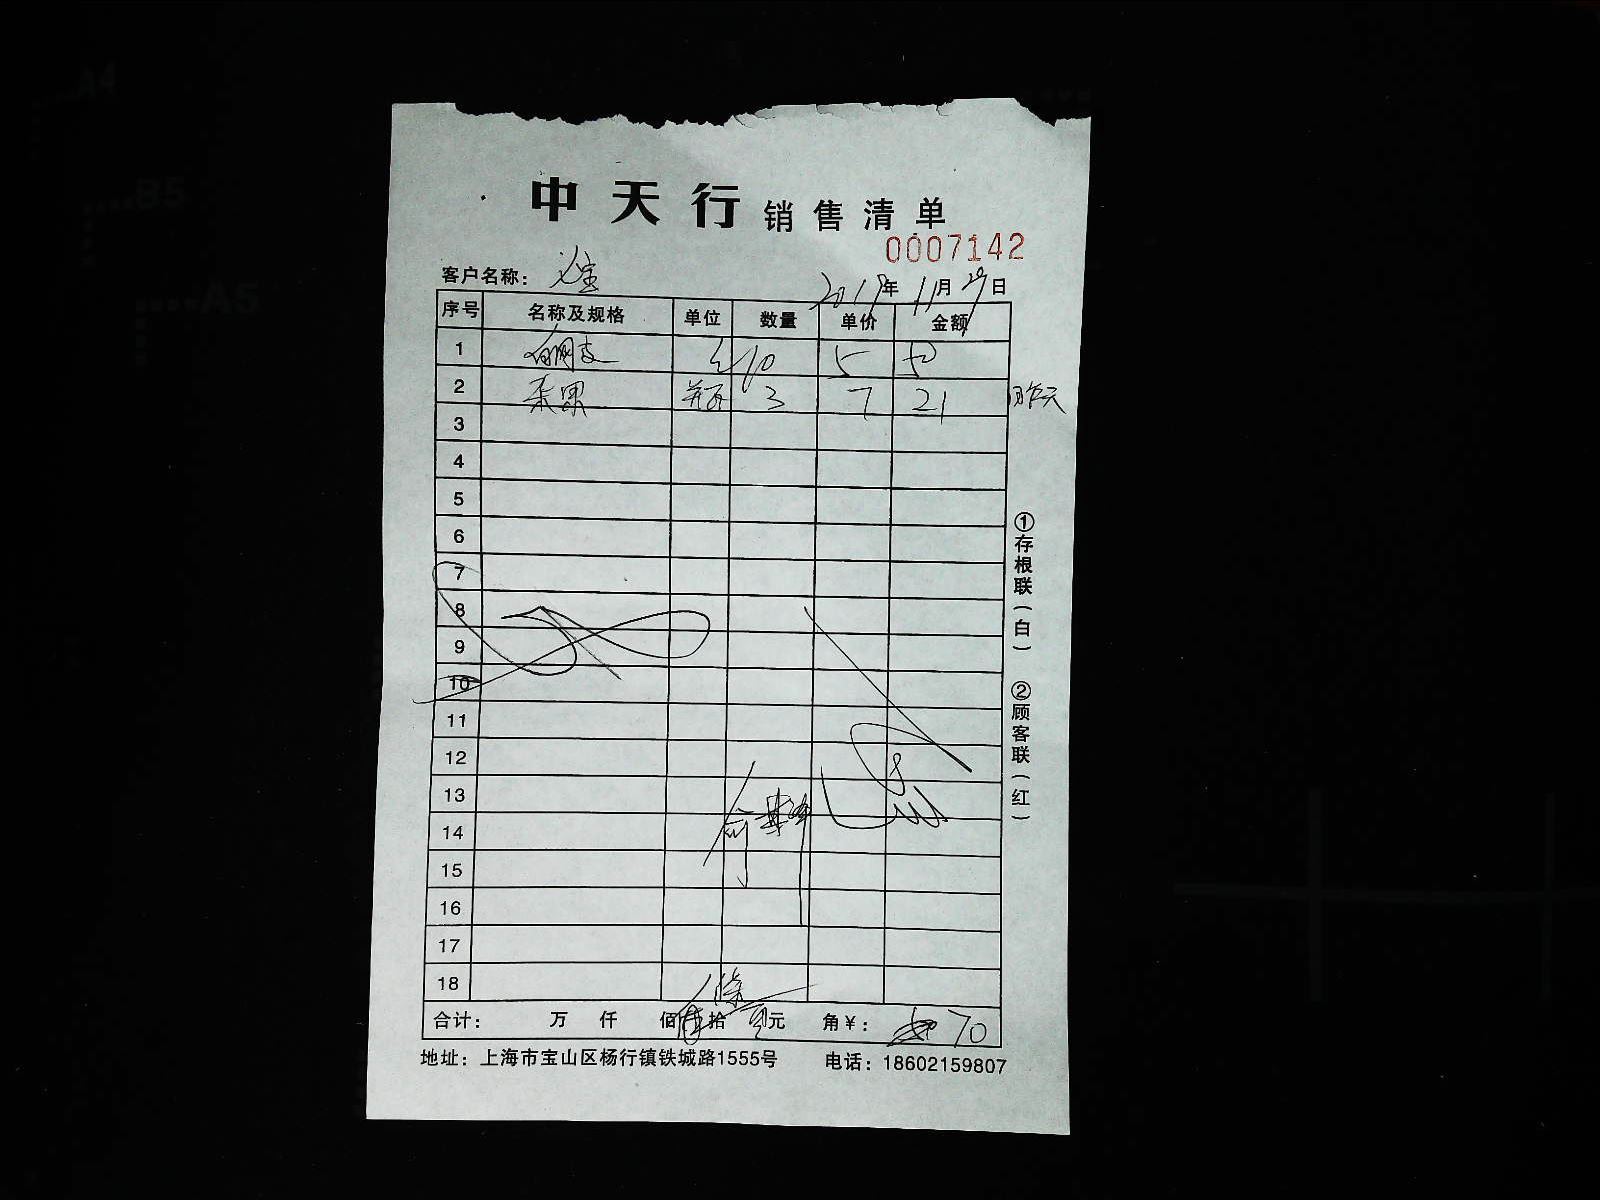 中天行 销售清单
0007142
客户名称：
2019年 11月 29日
序号 名称及规格 单位 数量 单价 金额
1 10 5 50
2 瓶 3 7 21 昨天
3
4
5
6
7
8
9
10
11
12
13
14
15
16
17
18
合计： 万 仟 佰 拾 元 角¥： 70
地址：上海市宝山区杨行镇铁城路1555号 电话：18602159807
①存根联（白） ②顾客联（红）
A4
B5
A5